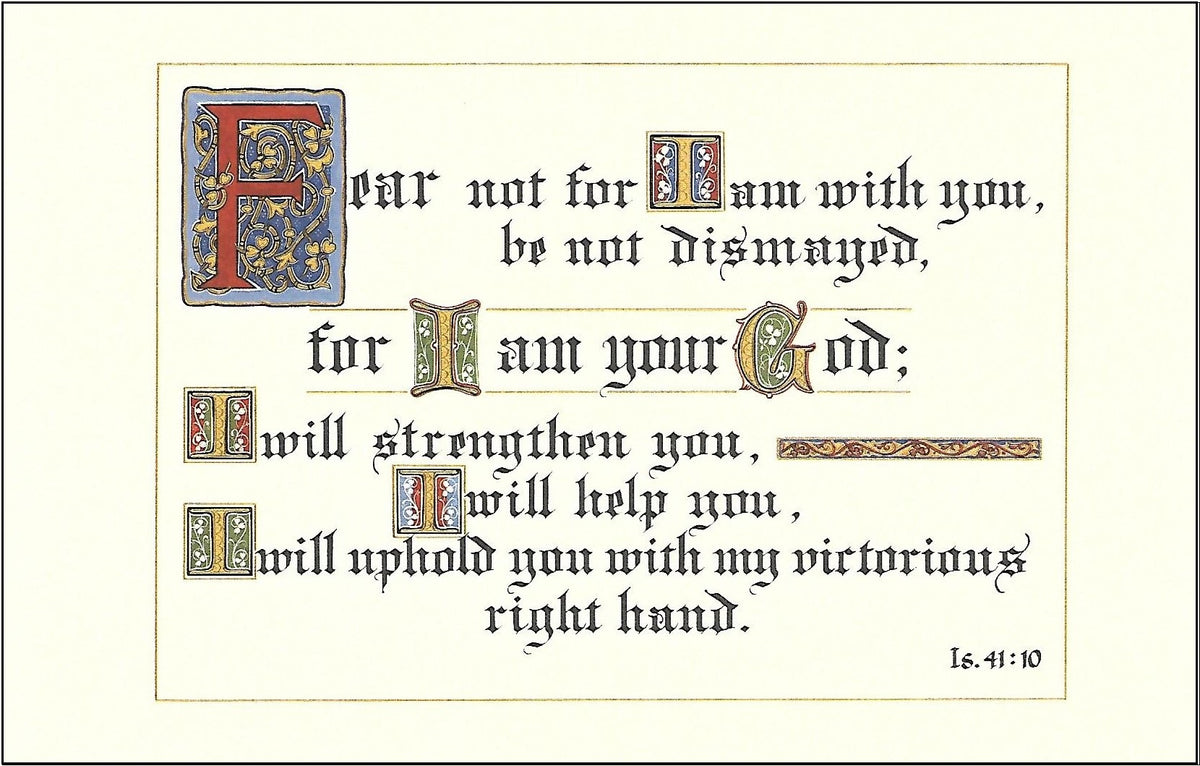 Fear not for I am with you,
be not dismayed,
for I am your God;
I will strengthen you,
I will help you,
I will uphold you with my victorious
right hand.
Is. 41:10